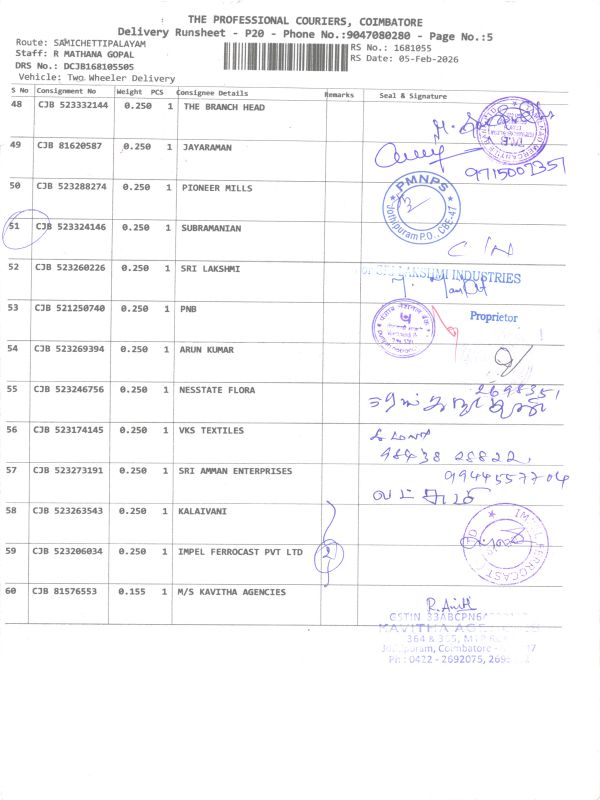 THE PROFESSIONAL COURIERS, COIMBATORE
Delivery Runsheet - P20 - Phone No.:9047080280 - Page No.:5
Route: SAMICHETTIPALAYAM
RS No.: 1681055
Staff: R MATHANA GOPAL
RS Date: 05-Feb-2026
DRS No.: DCJB168105505
Vehicle: Two Wheeler Delivery
S No Consignment No Weight PCS Consignee Details Remarks Seal & Signature
48 CJB 523332144 0.250 1 THE BRANCH HEAD
49 CJB 81620587 0.250 1 JAYARAMAN
9715007357
50 CJB 523288274 0.250 1 PIONEER MILLS
PMNPS
Jothipuram P.O., CBE-47
51 CJB 523324146 0.250 1 SUBRAMANIAN
52 CJB 523260226 0.250 1 SRI LAKSHMI
SRI LAKSHMI INDUSTRIES
53 CJB 521250740 0.250 1 PNB
Proprietor
54 CJB 523269394 0.250 1 ARUN KUMAR
55 CJB 523246756 0.250 1 NESSTATE FLORA
2698351
56 CJB 523174145 0.250 1 VKS TEXTILES
98438 28822,
57 CJB 523273191 0.250 1 SRI AMMAN ENTERPRISES
9944557704
58 CJB 523263543 0.250 1 KALAIVANI
59 CJB 523206034 0.250 1 IMPEL FERROCAST PVT LTD 2
IMPEL FERROCAST
60 CJB 81576553 0.155 1 M/S KAVITHA AGENCIES
R. Anith
GSTIN 33ABCPN6
KAVITHA
364 &
Coimbatore -
Ph : 0422 - 2692075,